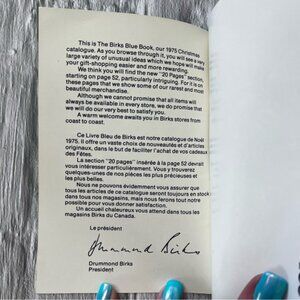 This is The Birks Blue Book, our 1975 Christmas
catalogue. As you browse through it, you will see a very
large variety of unusual ideas which we hope will make
your gift-shopping easier and more rewarding.
We think you will find the new "20 Pages" section,
starting on page 52, particularly intriguing. For it is on
these pages that we show some of our rarest and most
beautiful merchandise.
Although we cannot promise that all items will
always be available in every store, we do promise that
we will do our very best to satisfy you.
A warm welcome awaits you in Birks stores from
coast to coast.
Ce Livre Bleu de Birks est notre catalogue de Noël
1975. Il offre un vaste choix de nouveautés et d'articles
originaux, dans le but de faciliter l'achat de vos cadeaux
des Fêtes.
La section "20 pages" insérée à la page 52 devrait
vous intéresser particulièrement. Vous y trouverez
quelques-unes de nos pièces les plus précieuses et
les plus belles.
Nous ne pouvons évidemment vous assurer que
tous les articles de ce catalogue seront toujours en stock
dans tous nos magasins, mais nous ferons tout notre
possible pour vous donner satisfaction.
Un accueil chaleureux vous attend dans tous les
magasins Birks du Canada.
Le président
Drummond Birks
Drummond Birks
President